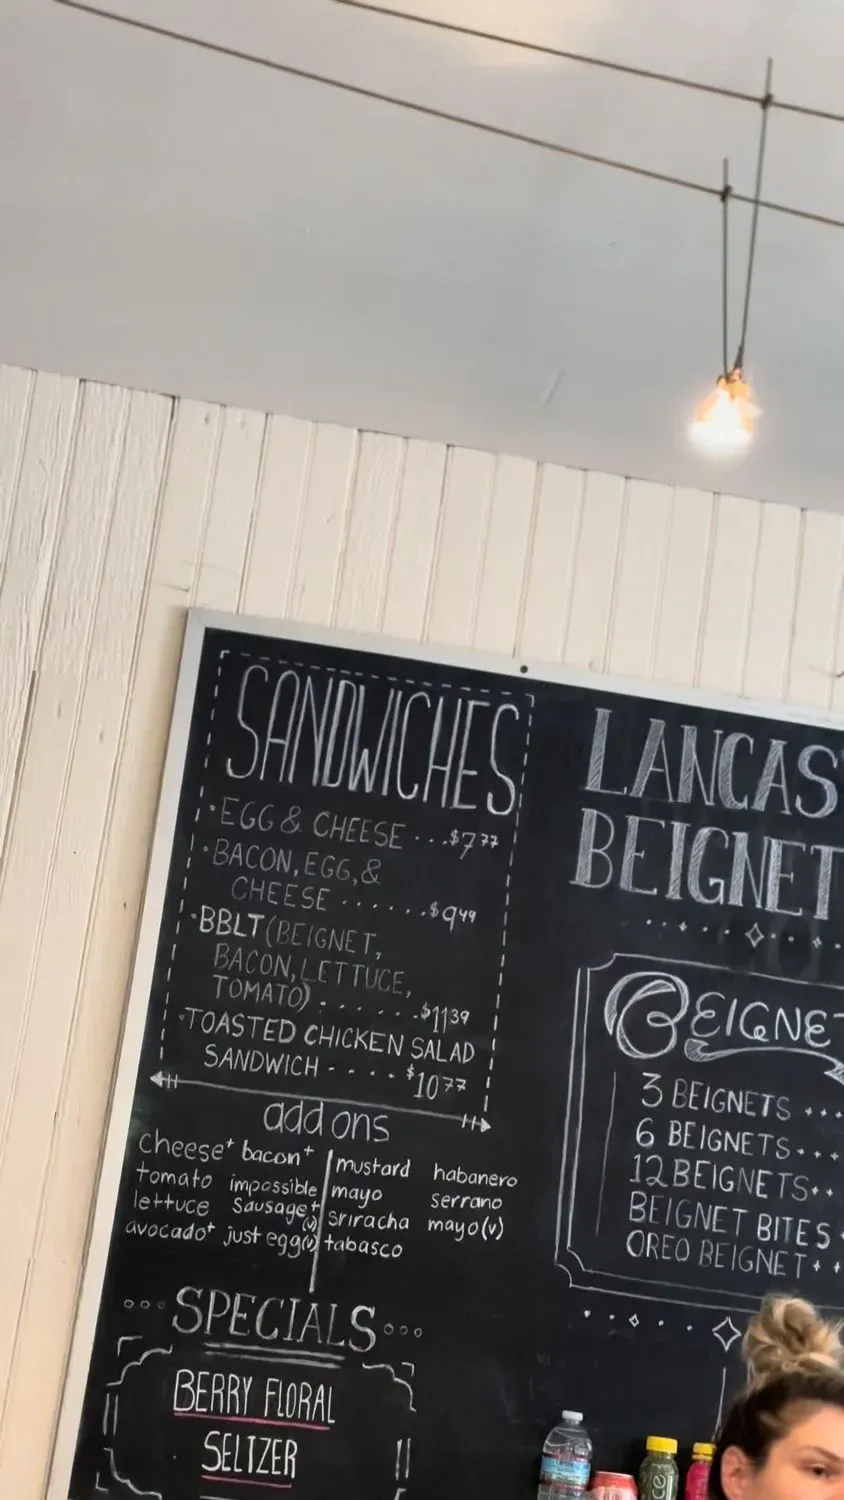 SANDWICHES
·EGG & CHEESE ...$7.77
·BACON, EGG, &
CHEESE .......$9.49
·BBLT (BEIGNET,
BACON, LETTUCE,
TOMATO) .......$11.39
·TOASTED CHICKEN SALAD
SANDWICH - - - - $10.77
add ons
cheese+ bacon+
tomato impossible
lettuce sausage+(v)
avocado+ just egg(v)
mustard habanero
mayo serrano
sriracha mayo(v)
tabasco
SPECIALS
BERRY FLORAL
SELTZER
LANCAS
BEIGNET
BEIGNE
3 BEIGNETS
6 BEIGNETS
12 BEIGNETS
BEIGNET BITES
OREO BEIGNET